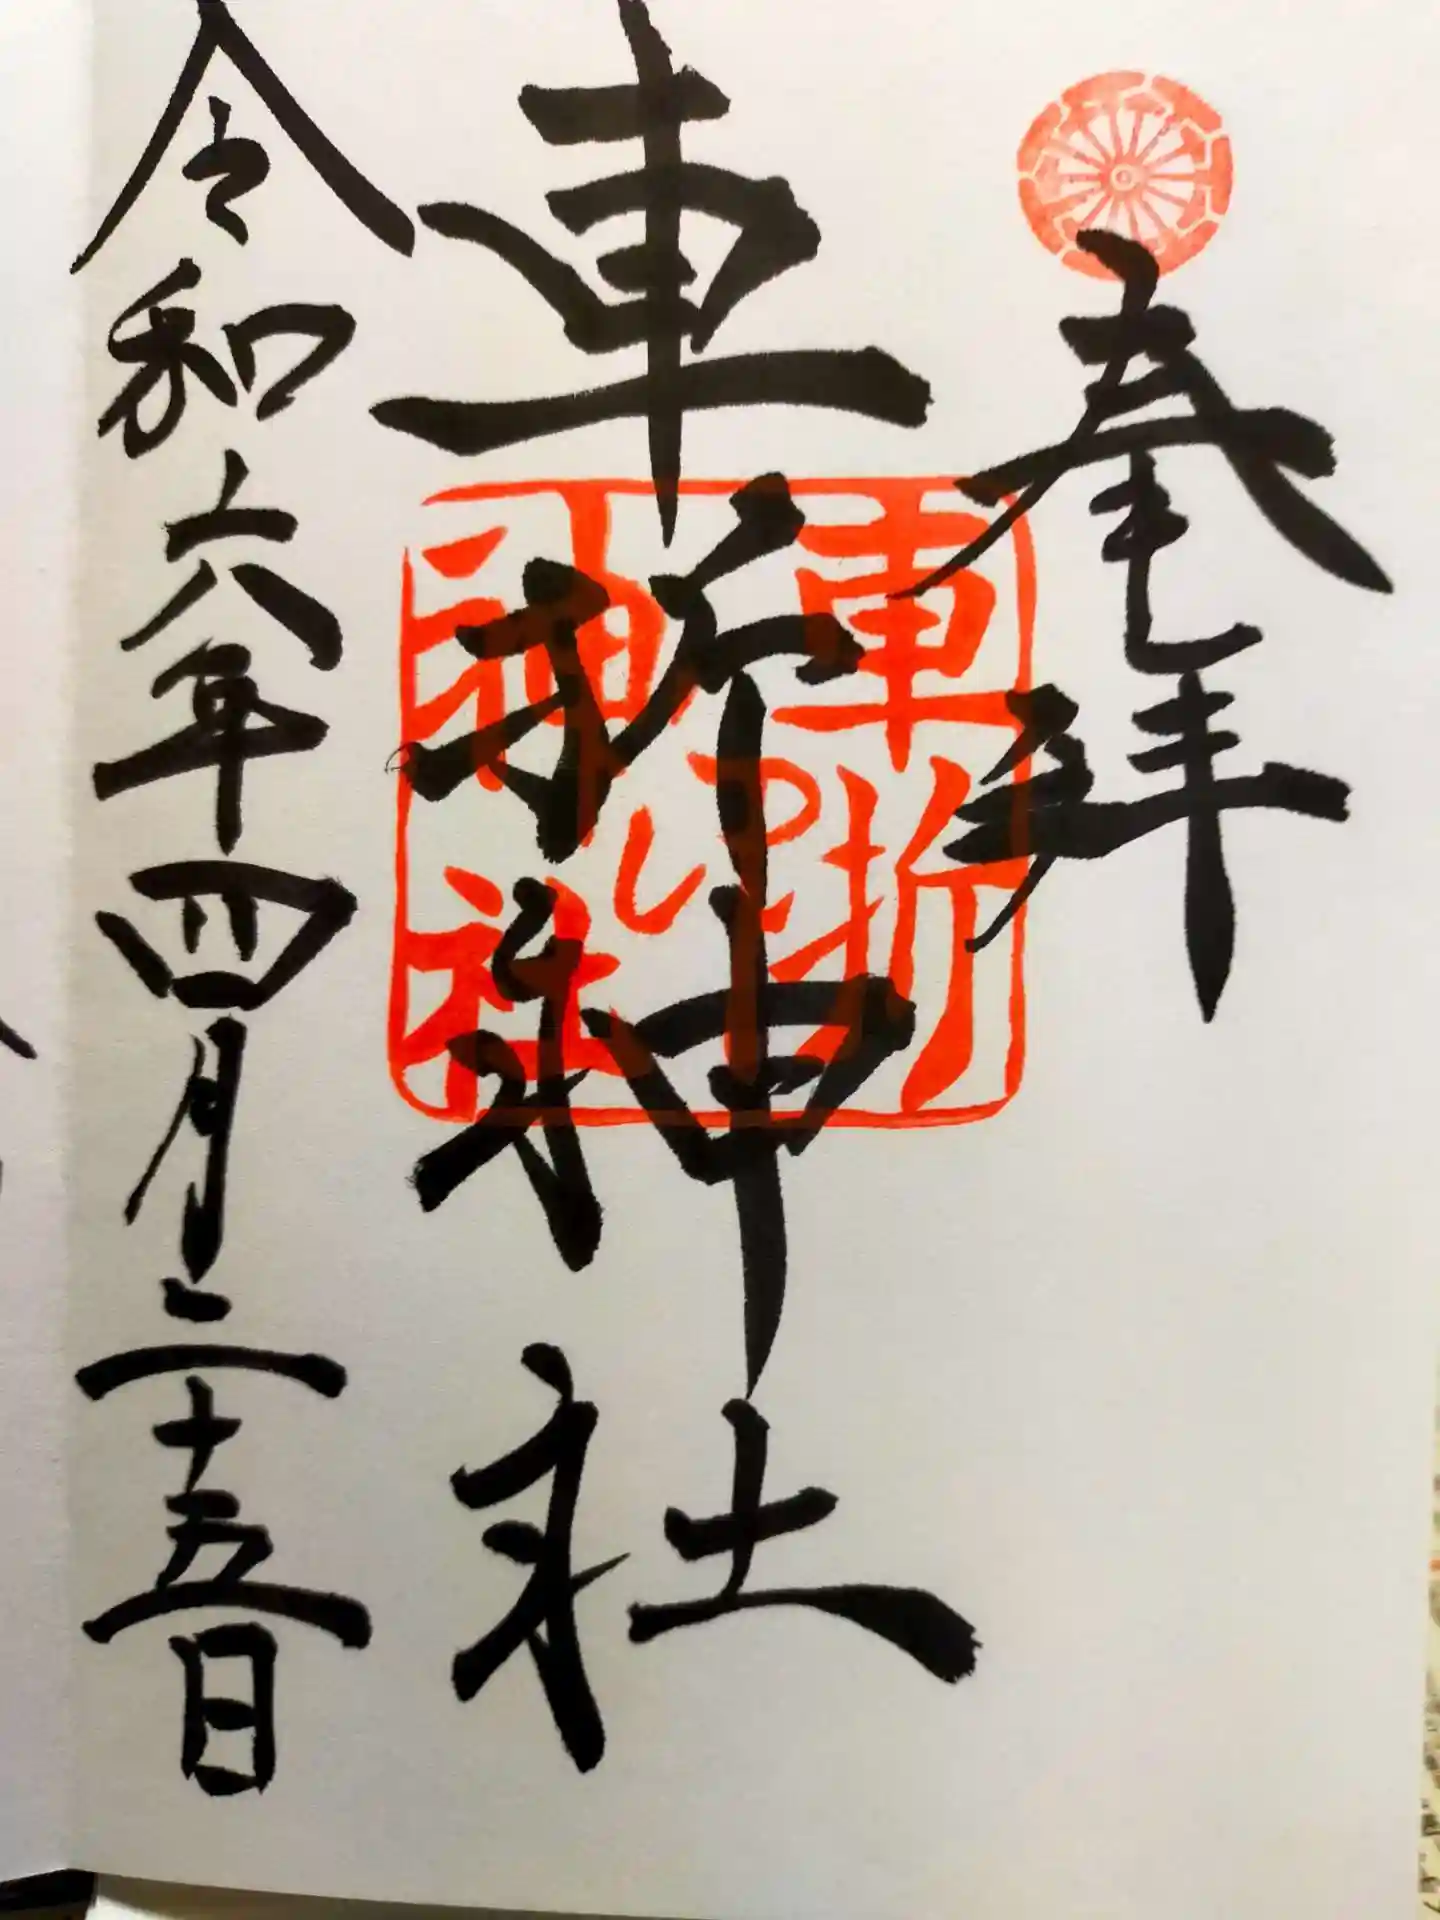 奉拝
車折神社
車折
神社
令和六年四月二十五日